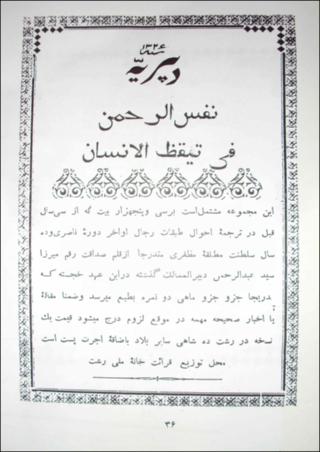 سنه ۱۳۲۶
دبیریّه
نفس الرحمن
فی تیقظ الانسان
این مجموعه مشتمل است برسی وپنجهزار بیت که از سی سال
قبل در ترجمهٔ احوال طبقات رجال اواخر دورهٔ ناصری وده
سال سلطنت مطلقهٔ مظفری مندرجا ازقلم صداقت رقم میرزا
سید عبدالرحمن دبیرالممالک گذشته دراین عهد خجسته که
بتدریجا جزو جزو ماهی دو نمره بطبع میرسد وضمنا مقالهٔ
با اخبار صحیحه مهمه در موقع لزوم درج میشود قیمت یک
نسخه در رشت ده شاهی سایر بلاد باضافهٔ اجرت پست است
محل توزیع قرائت خانهٔ ملی رشت
۳۶